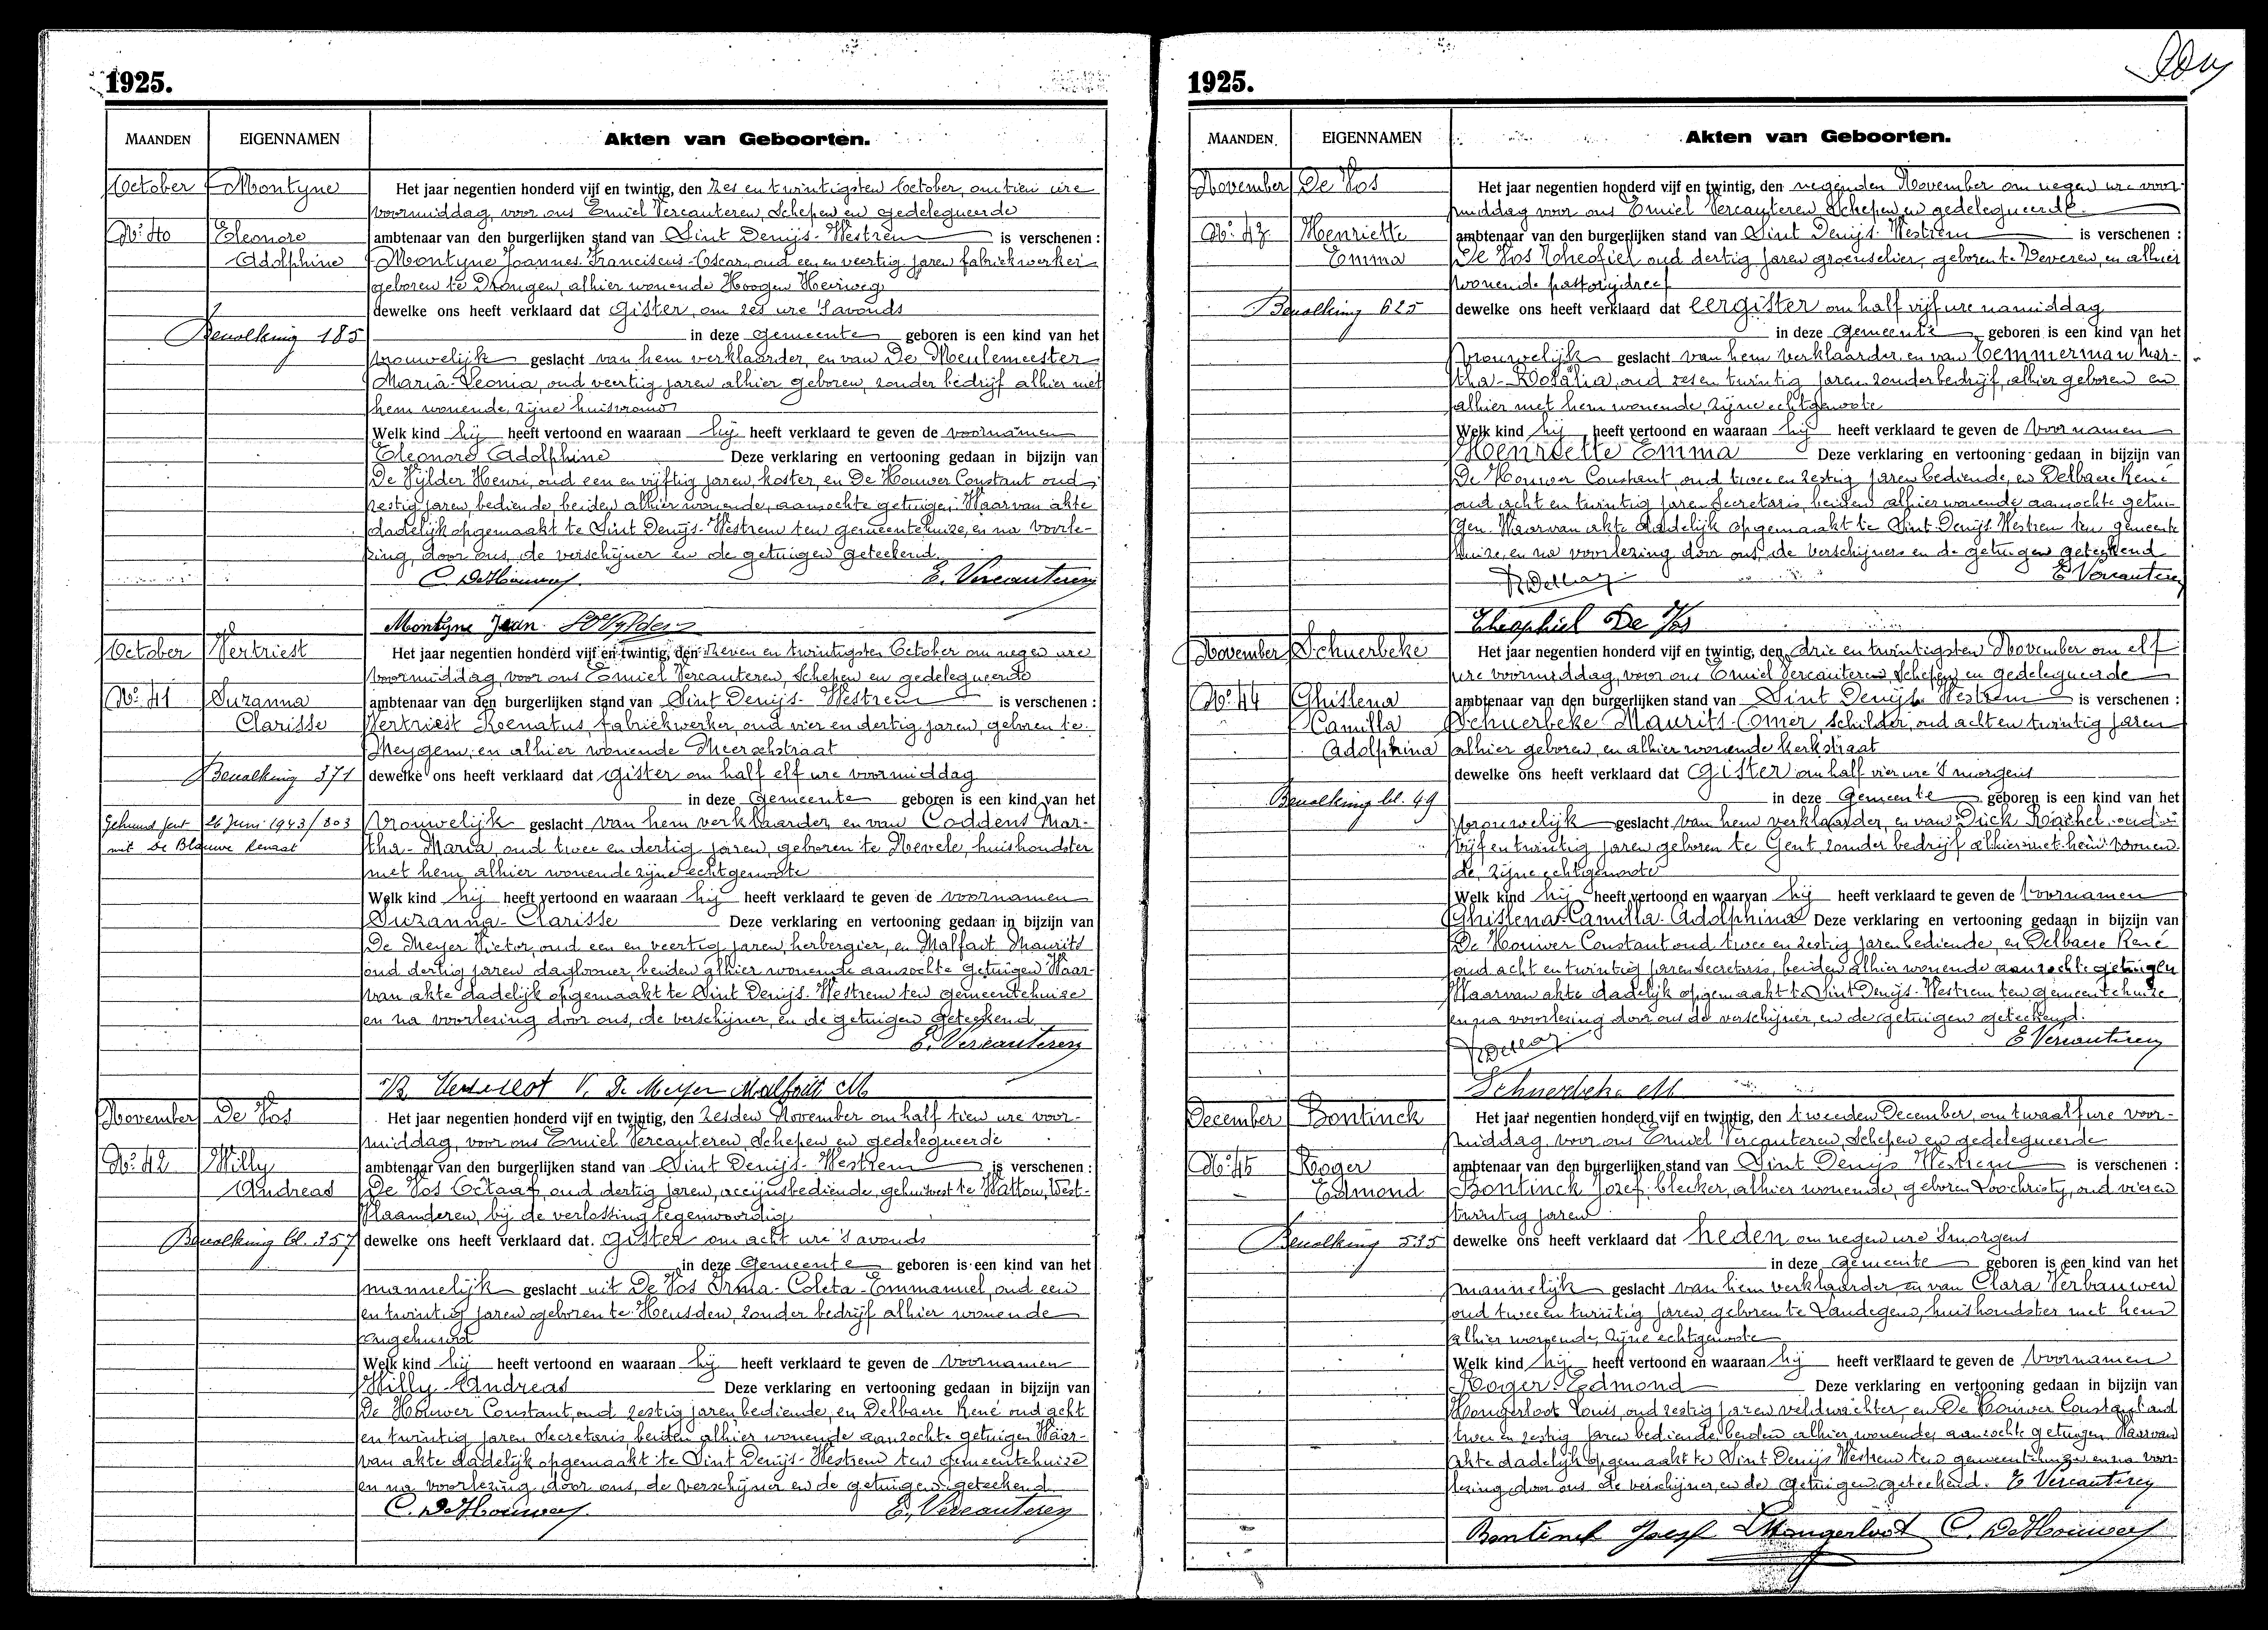 1925.
MAANDEN EIGENNAMEN Akten van Geboorten.
October Montyne Het jaar negentien honderd vijf en twintig, den zes en twintigsten October, om tien ure
voormiddag, voor ons Emiel Vercauteren, Schepen en gedelegueerde
No. 40 Eleonore ambtenaar van den burgerlijken stand van Sint Denijs-Westrem is verschenen :
Adolphine Montyne Joannes-Franciscus-Oscar, oud een en veertig jaren fabriekwerker
geboren te Drongen, alhier wonende Hoogen Heirweg
dewelke ons heeft verklaard dat gister, om zes ure 's avonds
Bevolking 185 in deze gemeente geboren is een kind van het
vrouwelijk geslacht van hem verklaarder, en van De Meulemeester
Maria-Leonia, oud veertig jaren alhier geboren, zonder bedrijf alhier met
hem wonende, zijne huisvrouw
Welk kind hij heeft vertoond en waaraan hij heeft verklaard te geven de voornamen
Eleonore Adolphine Deze verklaring en vertooning gedaan in bijzijn van
De Vylder Henri, oud een en vijftig jaren, koster, en De Houwer Constant oud
zestig jaren, bediende, beiden alhier wonende, aanzochte getuigen. Waarvan akte
dadelijk opgemaakt te Sint Denijs-Westrem ten gemeentehuize, en na voorle-
zing, door ons, de verschijner en de getuigen geteekend.
C. DeHouwer E. Vercauteren
Montyne Jean. DVylder
October Vertriest Het jaar negentien honderd vijf en twintig, den zeven en twintigsten October om negen ure
voormiddag, voor ons Emiel Vercauteren, Schepen en gedelegueerde
No. 41 Suzanna ambtenaar van den burgerlijken stand van Sint Denijs-Westrem is verschenen :
Clarisse Vertriest Renatus, fabriekwerker, oud vier en dertig jaren, geboren te
Meygem, en alhier wonende Meerschstraat
Bevolking 371 dewelke ons heeft verklaard dat gister om half elf ure voormiddag
in deze Gemeente geboren is een kind van het
Gehuwd Gent 26 Juni 1943/803 vrouwelijk geslacht van hem verklaarder, en van Coddens Mar-
met De Blauwe Renaat tha-Maria, oud twee en dertig jaren, geboren te Nevele, huishoudster
met hem, alhier wonende zijne echtgenoote
Welk kind hij heeft vertoond en waaraan hij heeft verklaard te geven de voornamen
Suzanna-Clarisse Deze verklaring en vertooning gedaan in bijzijn van
De Meyer Victor, oud een en veertig jaren, herbergier, en Malfait Maurits
oud dertig jaren dagloner, beiden alhier wonende aanzochte getuigen Waar-
van akte dadelijk opgemaakt te Sint Denijs-Westrem ten gemeentehuize
en na voorlezing door ons, de verschijner, en de getuigen geteekend
E. Vercauteren
V. De Meyer Malfait M
November De Vos Het jaar negentien honderd vijf en twintig, den zesden November om half tien ure voor-
middag, voor ons Emiel Vercauteren, Schepen en gedelegueerde
No. 42 Willy ambtenaar van den burgerlijken stand van Sint Denijs-Westrem is verschenen :
Andreas De Vos Octaaf, oud dertig jaren, accijnsbediende, gehuisvest te Watou, West-
Vlaanderen, bij de verlossing tegenwoordig
Bevolking bl. 357 dewelke ons heeft verklaard dat gister om acht ure 's avonds
in deze Gemeente geboren is een kind van het
mannelijk geslacht uit De Vos Irma-Coleta-Emmanuel, oud een
en twintig jaren geboren te Heusden, zonder bedrijf alhier wonende
ongehuwd
Welk kind hij heeft vertoond en waaraan hij heeft verklaard te geven de voornamen
Willy-Andreas Deze verklaring en vertooning gedaan in bijzijn van
De Houwer Constant, oud zestig jaren, bediende, en Delbaere René oud acht
en twintig jaren secretaris, beiden alhier wonende aanzochte getuigen Waar-
van akte dadelijk opgemaakt te Sint Denijs-Westrem ten gemeentehuize
en na voorlezing, door ons, de verschijner en de getuigen geteekend
C. DeHouwer E. Vercauteren
1925.
MAANDEN EIGENNAMEN Akten van Geboorten.
November De Vos Het jaar negentien honderd vijf en twintig, den negenden November om negen ure voor-
middag voor ons Emiel Vercauteren, Schepen en gedelegueerde
No. 43 Henriette ambtenaar van den burgerlijken stand van Sint Denijs-Westrem is verschenen :
Emma De Vos Theofiel oud dertig jaren groenselier, geboren te Deveren, en alhier
wonende pastorijdreef
Bevolking 625 dewelke ons heeft verklaard dat eergister om half vijf ure namiddag
in deze Gemeente geboren is een kind van het
vrouwelijk geslacht van hem verklaarder en van Temmerman Mar-
tha-Rosalia, oud zes en twintig jaren zonder bedrijf, alhier geboren en
alhier met hem wonende, zijne echtgenoote
Welk kind hij heeft vertoond en waaraan hij heeft verklaard te geven de voornamen
Henriette Emma Deze verklaring en vertooning gedaan in bijzijn van
De Houwer Constant, oud twee en zestig jaren bediende, en Delbaere René
oud acht en twintig jaren Secretaris, beiden alhier wonende, aanzochte getui-
gen. Waarvan akte dadelijk opgemaakt te Sint-Denijs Westrem ten gemeente
huize, en na voorlezing door ons, de verschijner en de getuigen geteekend
E Vercauteren
Theophiel De Vos
November Schuerbeke Het jaar negentien honderd vijf en twintig, den drie en twintigsten November om elf
ure voormiddag, voor ons Emiel Vercauteren, Schepen en gedelegueerde
No. 44 Ghislena ambtenaar van den burgerlijken stand van Sint Denijs Westrem is verschenen :
Camilla Schuerbeke Maurits-Comer, schilder, oud acht en twintig jaren
Adolphina alhier geboren, en alhier wonende kerkstraat
dewelke ons heeft verklaard dat gister om half vier ure 's morgens
Bevolking bl. 49 in deze Gemeente geboren is een kind van het
vrouwelijk geslacht van hem verklaarder, en van Dick Rachel, oud
vijf en twintig jaren geboren te Gent, zonder bedrijf alhier met hem wonen-
de, zijne echtgenoote
Welk kind hij heeft vertoond en waaraan hij heeft verklaard te geven de voornamen
Ghislena-Camilla-Adolphina Deze verklaring en vertooning gedaan in bijzijn van
De Houwer Constant oud twee en zestig jaren bediende, en Delbaere René
oud acht en twintig jaren Secretaris, beiden alhier wonende aanzochte getuigen
Waarvan akte dadelijk opgemaakt te Sint Denijs-Westrem ten gemeentehuize
en na voorlezing door ons de verschijner, en de getuigen geteekend.
E Vercauteren
Schuerbeke M
December Bontinck Het jaar negentien honderd vijf en twintig, den tweeden December, om twaalf ure voor-
middag voor ons Emiel Vercauteren, Schepen en gedelegueerde
No. 45 Roger ambtenaar van den burgerlijken stand van Sint Denijs Westrem is verschenen :
Edmond Bontinck Jozef, bleeker, alhier wonende, geboren Loochristy, oud vier en
twintig jaren
Bevolking 535 dewelke ons heeft verklaard dat heden om negen ure 's morgens
in deze Gemeente geboren is een kind van het
mannelijk geslacht van hem verklaarder, en van Clara Verbauwen
oud twee en twintig jaren, geboren te Landegem, huishoudster met hem
alhier wonende, zijne echtgenoote
Welk kind hij heeft vertoond en waaraan hij heeft verklaard te geven de voornamen
Roger-Edmond Deze verklaring en vertooning gedaan in bijzijn van
Hongerloot Louis, oud zestig jaren veldwachter, en De Houwer Constant oud
twee en zestig jaren bediende beiden alhier wonende, aanzochte getuigen. Waarvan
akte dadelijk opgemaakt te Sint Denijs Westrem ten gemeentehuize en na voor-
lezing door ons de verschijner, en de getuigen geteekend. E Vercauteren
Bontinck Josef LHongerloot C. DeHouwer